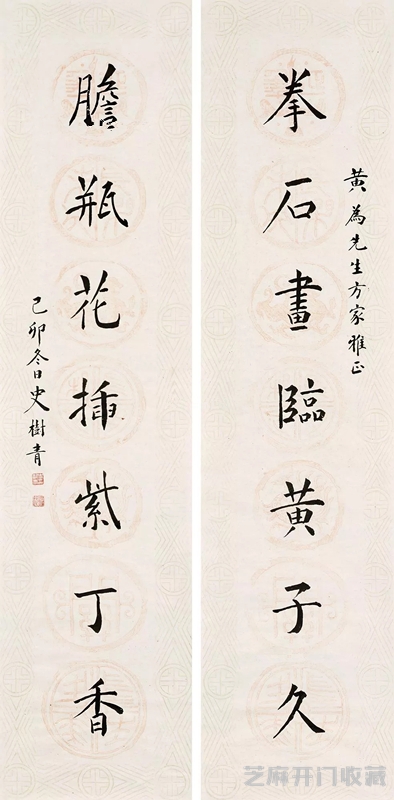 黄為先生方家雅正
拳石畫臨黄子久
膽瓶花插紫丁香
己卯冬日史樹青
芝麻开门收藏